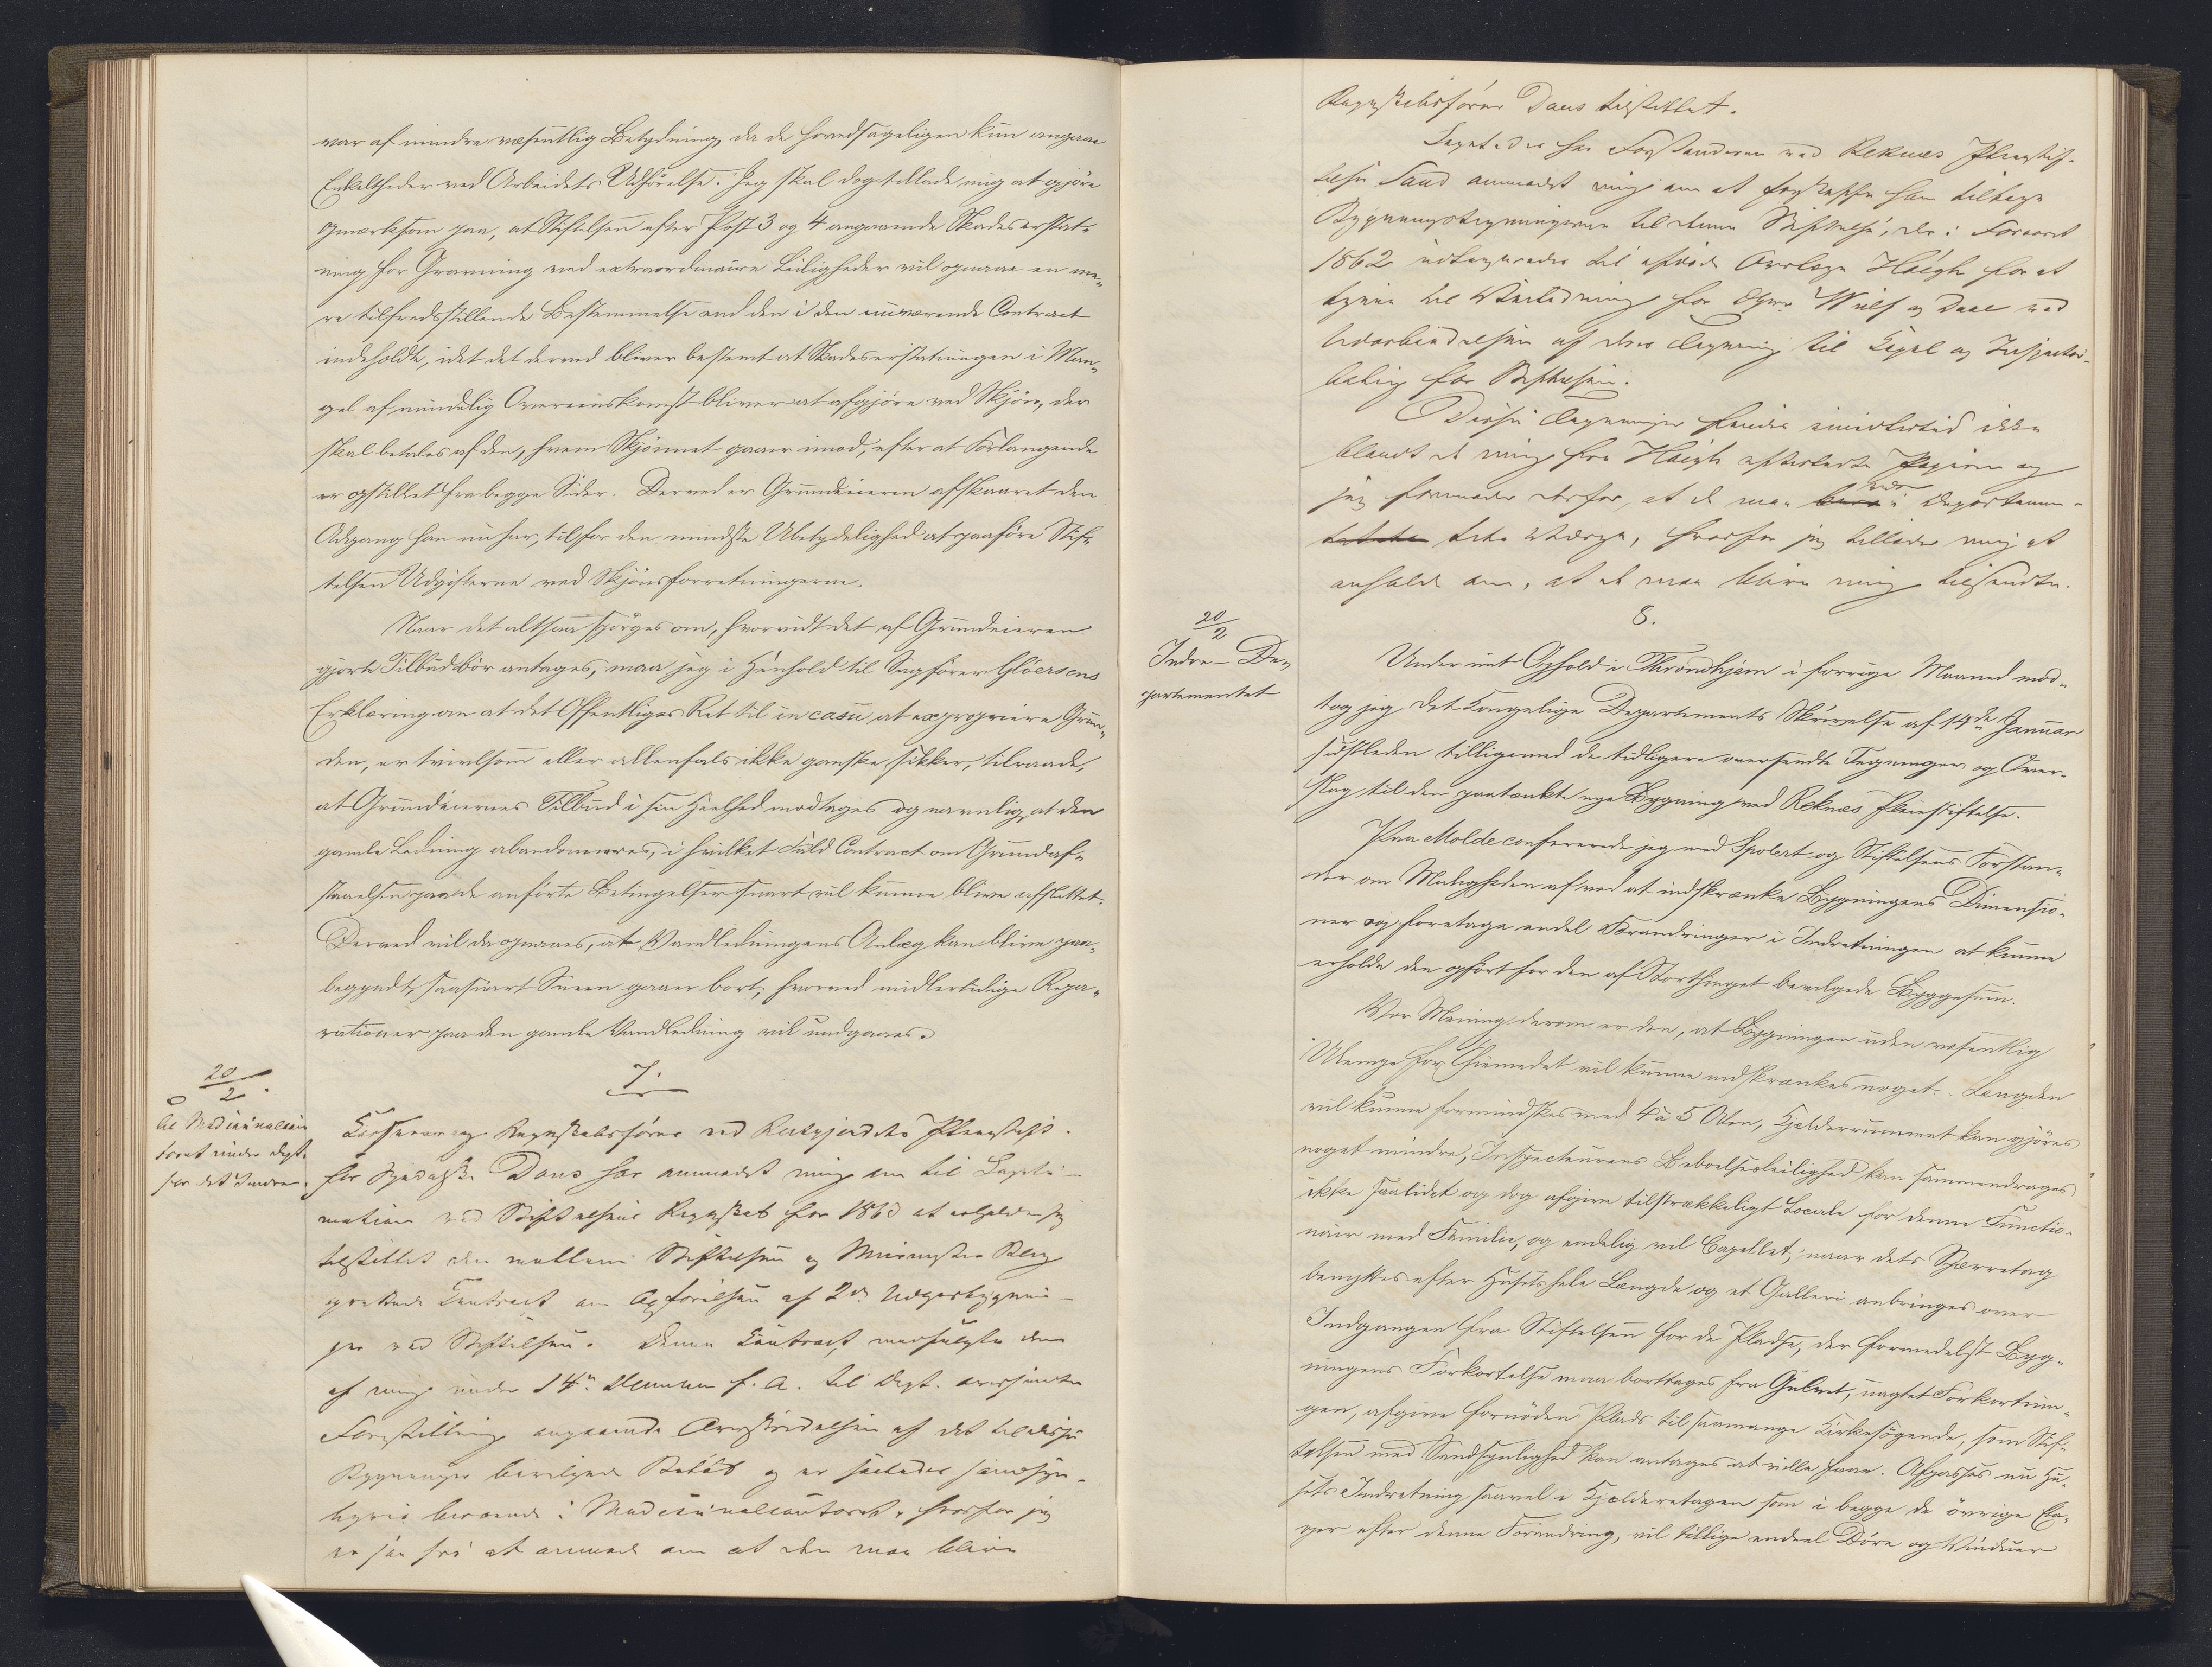 var af mindre væsentlig Betydning, da de hovedsageligen kun angaae
Enkeltheder ved Arbeidets Udførelse. Jeg skal dog tillade mig at gjøre
opmærksom paa, at Stiftelsen efter Post 3 og 4 angaaende Skadeserstat-
ning for Gravning ved extraordinaire Leiligheder vil opnaae en me-
re tilfredsstillende Bestemmelse end den i den nuværende Contract
indeholdte, idet det derved bliver bestemt at Skadeserstatningen i Man-
gel af mindelig Overeenskomst bliver at afgjøre ved Skjøn, der
skal betales af den, hvem Skjønnet gaaer imod, efter at Forlangende
er opstillet fra begge Sider. Derved er Grundeieren afskaaret den
Adgang han nu har, til for den mindste Ubetydelighed at paaføre Stif-
telsen Udgifterne ved Skjønsforretningerne.
Naar det altsaa spørges om, hvorvidt det af Grundeieren
gjorte Tilbud bør antages, maa jeg i Henhold til Sagfører Gløersens
Erklæring om at det Offentliges Ret til in casu at expropriere Grun-
den, er tvivlsom eller allenfals ikke ganske sikker, tilraade,
at Grundeiernes Tilbud i sin Heelhed modtages og navnlig, at den
gamle Ledning abandonneres, i hvilket Fald Contract om Grundaf-
staaelsen paa de anførte Betingelser snart vil kunne blive afsluttet.
Derved vil da opnaaes, at Vandledningens Anlæg kan blive paa-
begyndt, saasnart Sneen gaaer bort, hvorved midlertidige Repa-
rationer paa den gamle Vandledning vil undgaaes.
20/2
til Medicinalcon
toret under Dept.
for det Indre.
7.
Kasserer og Regnskabsfører ved Reitgjerdets Pleiestift.
for Spedalske Dons har anmodet mig om til Legiti-
mation ved Stiftelsens Regnskab for 1863 at erholde sig
tilstillet den mellem Stiftelsen og Muurmester Berg
oprettede Contract om Opførelsen af 2de Udhusbygnin-
ger ved Stiftelsen. Denne Contract medfulgte den
af mig under 14de f. A. til Dept. oversendte
Forestilling angaaende Overskridelsen af det til disse
Bygninger bevilgede Beløb og er saaledes sandsyn-
ligviis beroende i Medicinalcontoret, hvorfor jeg
er saa fri at anmode om at den maa blive
Regnskabsfører Dons tilstillet.
Ligeledes har Forstanderen ved Reknes Pleiestif-
telse Sand anmodet mig om at forskaffe ham tilbage
Bygningstegningerne til denne Stiftelse, der i Foraaret
1862 udlaantes til afdøde Overlæge Høegh for at
tjene til Veiledning for Wulf og Dael ved
Udarbeidelsen af deres Tegning til Kapel og Inspecteur-
bolig for Stiftelsen.
Disse Tegninger findes imidlertid ikke
blandt de mig fra Høegh efterladte Papirer og
jeg formoder derfor, at de maa bero i Departemen-
tet, hvorfor jeg tillader mig at
anholde om, at de maa blive mig tilsendte.
20/2
Indre-De-
partementet
8.
Under mit Ophold i Throndhjem i forrige Maaned mod-
tog jeg det Kongelige Departements Skrivelse af 14de Januar
sidstleden tilligemed de tidligere oversendte Tegninger og Over-
slag til den paatænkte nye Bygning ved Reknæs Pleiestiftelse.
Paa Molde confererede jeg med Spolert og Stiftelsens Forstan-
der om Muligheden af ved at indskrænke Bygningens Dimensio-
ner og foretage endel Forandringer i Indretningen at kunne
erholde den opført for den af Storthinget bevilgede Byggesum.
Vor Mening derom er den, at Bygningen uden væsentlig
Ulempe for Øiemedet vil kunne indskrænkes noget. Længden
vil kunne formindskes med 4 à 5 Alen, Kjelderrummet kan gjøres
noget mindre, Inspecteurens Beboelsesleilighed kan sammendrages
ikke saalidet og dog afgive tilstrækkeligt Locale for denne Functio-
nair med Familie, og endelig vil Capellet, naar dets Sperretag
benyttes efter Husets hele Længde og et Galleri anbringes over
Indgangen fra Stiftelsen for de Pladse, der formedelst Byg-
ningens Forkortelse maa borttages fra Gulvet, uagtet Forkortnin-
gen, afgive fornøden Plads til saamange Kirkesøgende, som Stif-
telsen med Sandsynlighed kan antages at ville faae. Afpasses nu Hu-
sets Indretning saavel i Kjelderetagen som i begge de øvrige Eta-
ger efter denne Forandring, vil tillige endeel Døre og Vinduer